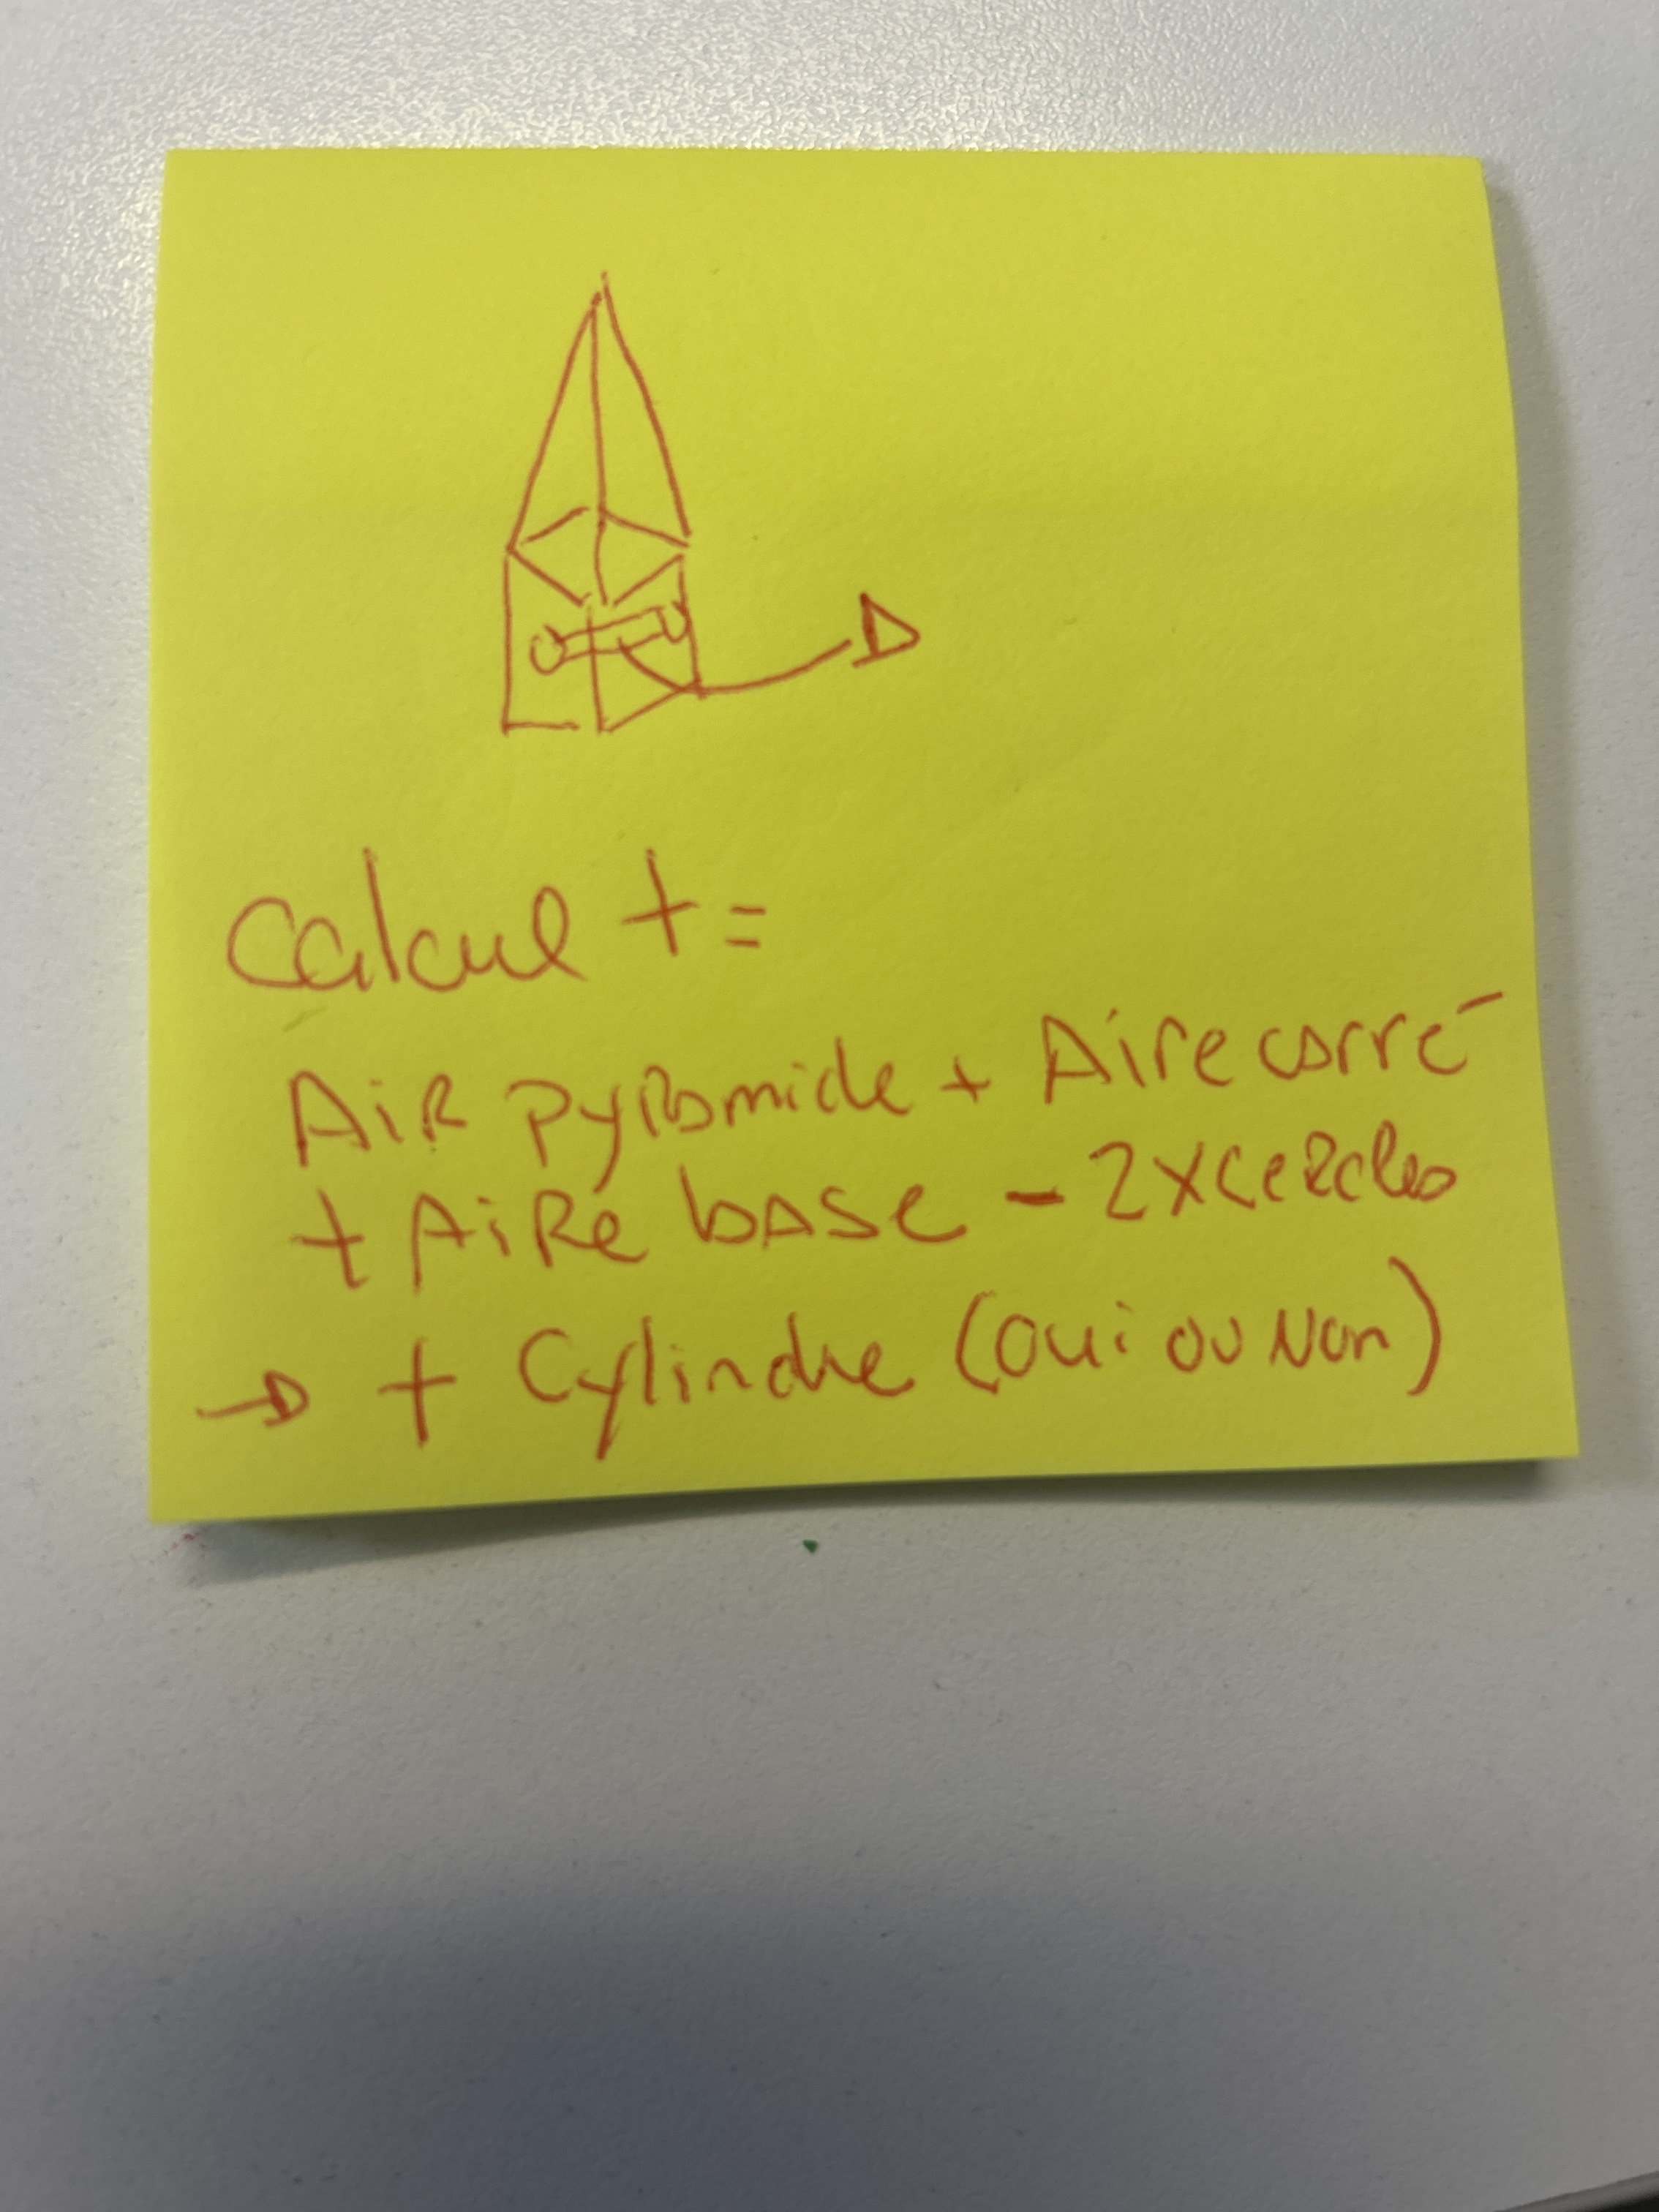 Calcul t =
AiR pyramide + Aire carré
+ AiRe base - 2xCeRcles
→ + Cylindre (Oui ou Non)